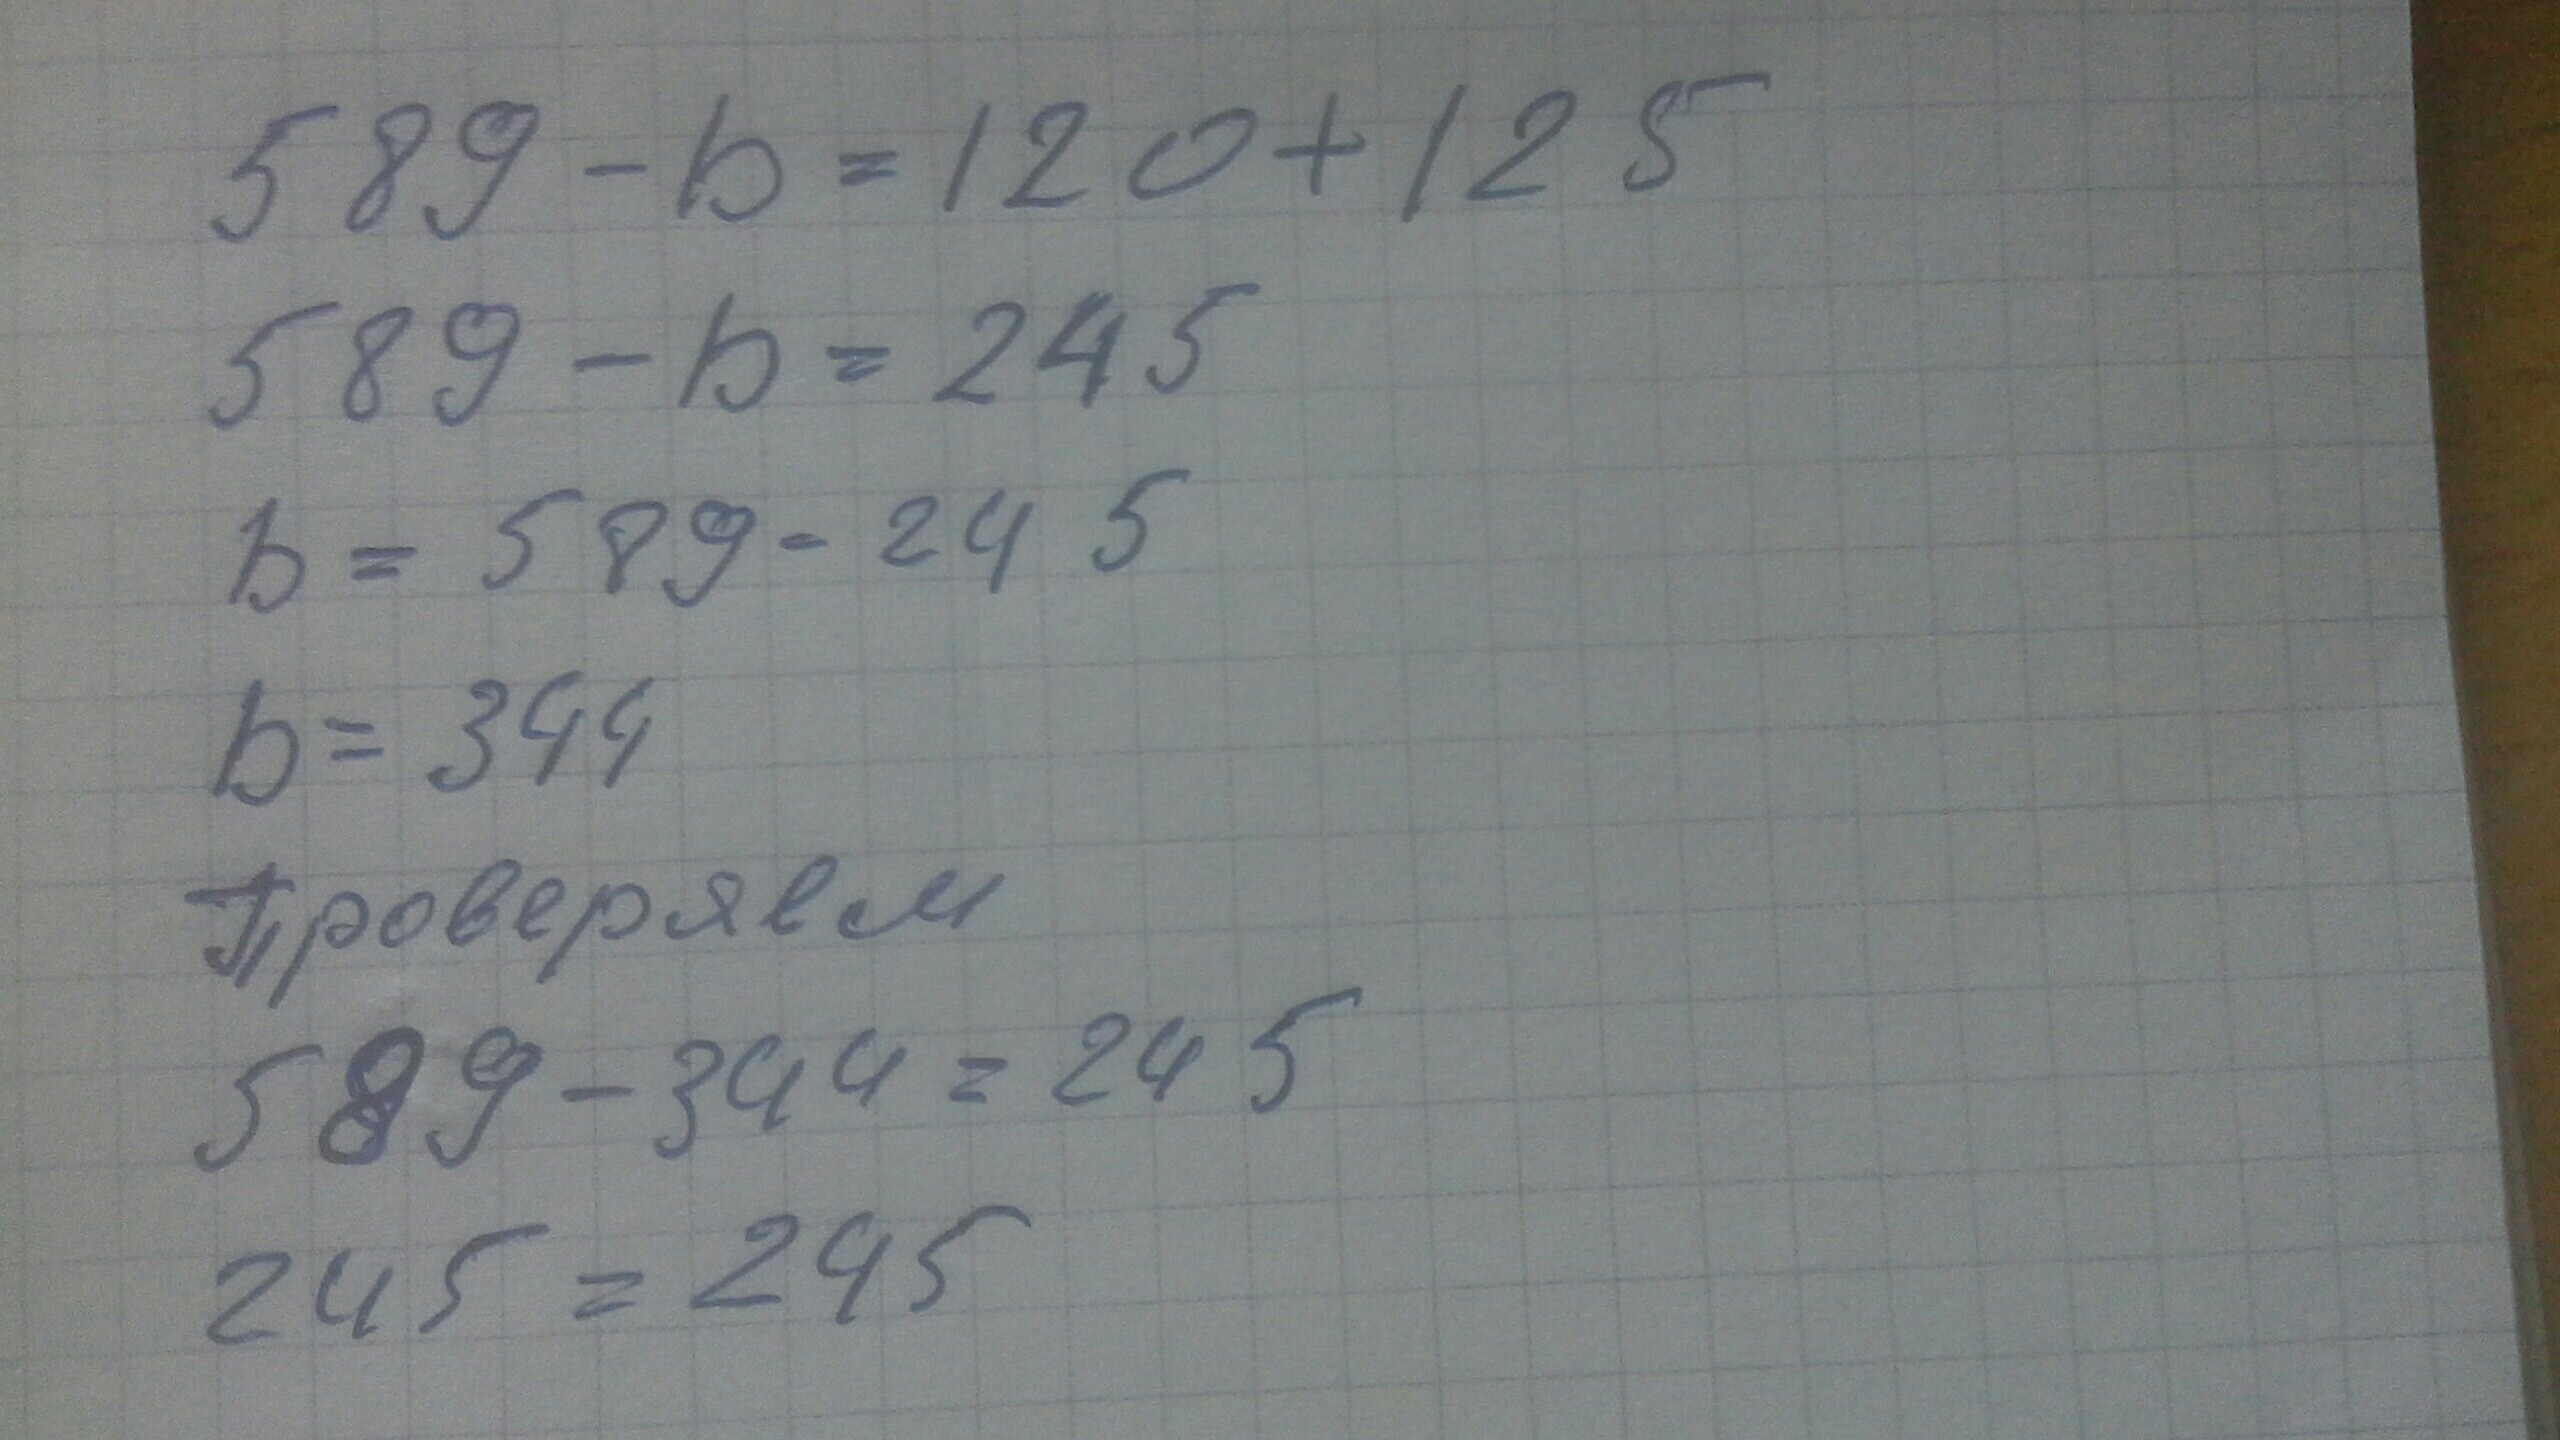 589 - b = 120 + 125
589 - b = 245
b = 589 - 245
b = 344
Проверяем
589 - 344 = 245
245 = 245